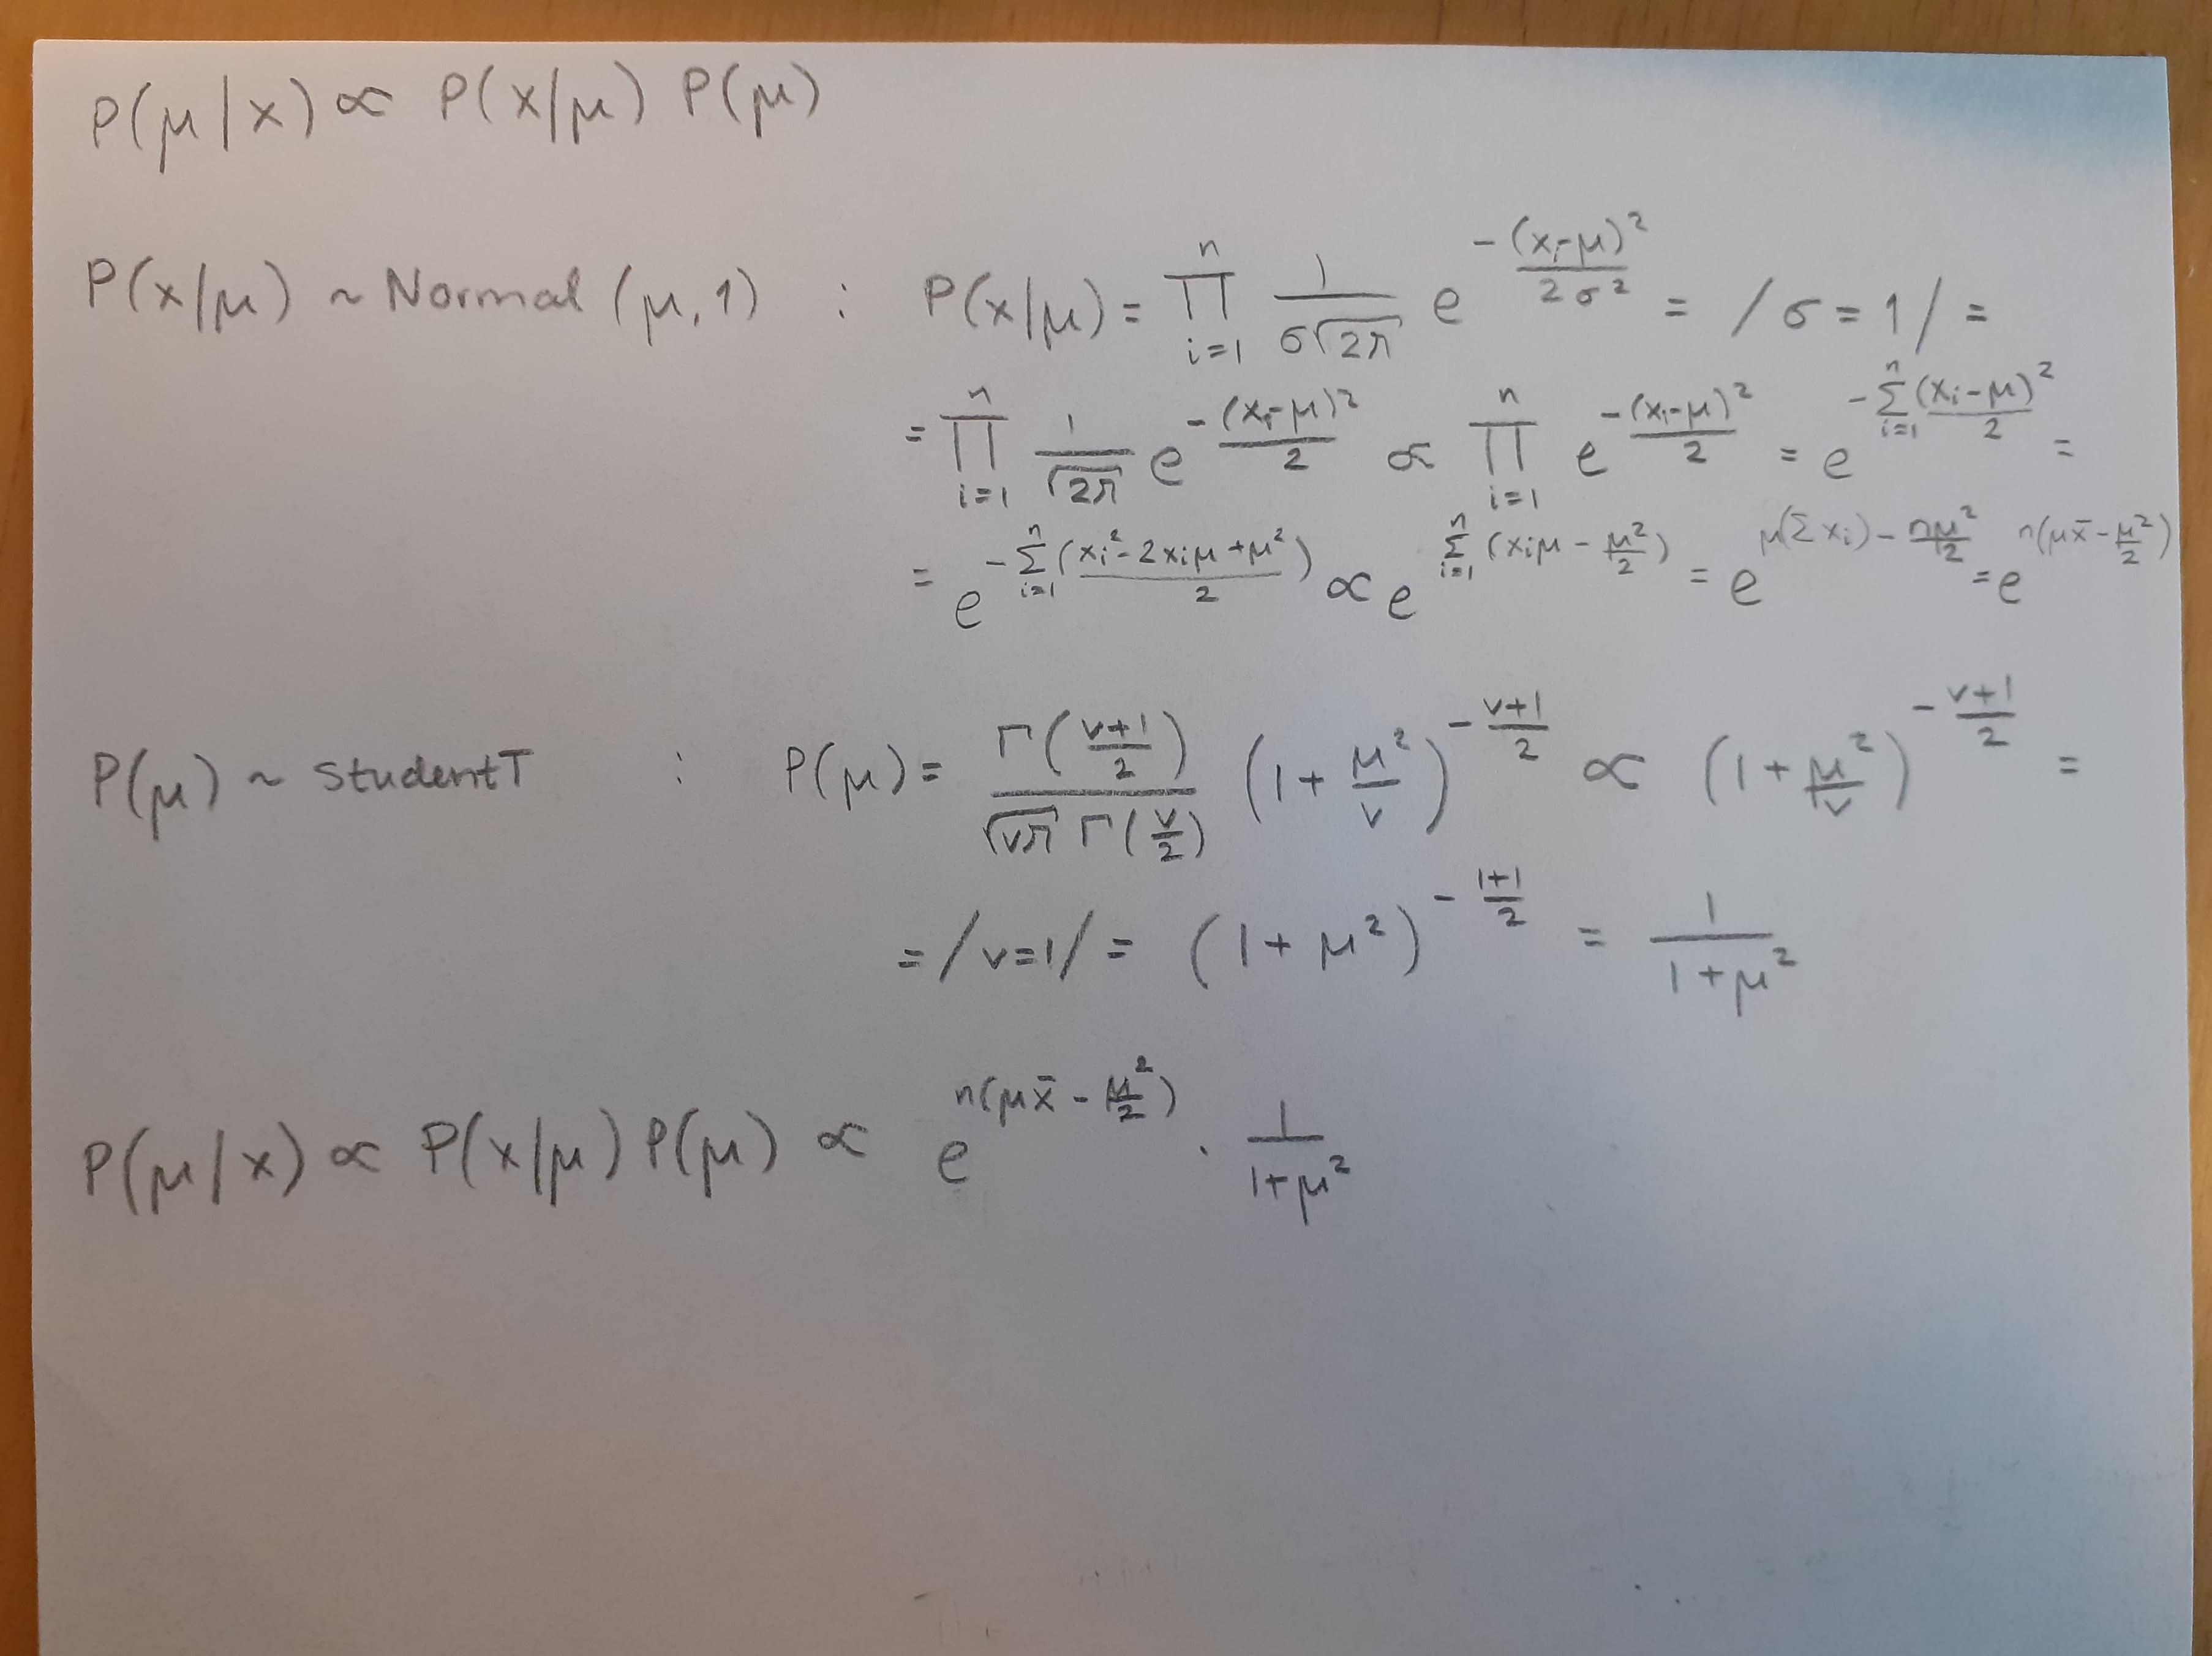 P(μ|x) ∝ P(x|μ) P(μ)
P(x|μ) ~ Normal (μ, 1) : P(x|μ) = ∏_{i=1}^{n} \frac{1}{σ√(2π)} e^{-\frac{(x_i-μ)^2}{2σ^2}} = /σ = 1/ =
= ∏_{i=1}^{n} \frac{1}{√(2π)} e^{-\frac{(x_i-μ)^2}{2}} ∝ ∏_{i=1}^{n} e^{-\frac{(x_i-μ)^2}{2}} = e^{-∑_{i=1}^{n} \frac{(x_i-μ)^2}{2}} =
= e^{-∑_{i=1}^{n} (\frac{x_i^2-2x_iμ+μ^2}{2})} ∝ e^{∑_{i=1}^{n} (x_iμ-\frac{μ^2}{2})} = e^{μ(∑x_i)-\frac{nμ^2}{2}} = e^{n(μx̄-\frac{μ^2}{2})}
P(μ) ~ StudentT : P(μ) = \frac{Γ(\frac{v+1}{2})}{√(vπ) Γ(\frac{v}{2})} (1+\frac{μ^2}{v})^{-\frac{v+1}{2}} ∝ (1+\frac{μ^2}{v})^{-\frac{v+1}{2}} =
= /v=1/ = (1+μ^2)^{-\frac{1+1}{2}} = \frac{1}{1+μ^2}
P(μ|x) ∝ P(x|μ) P(μ) ∝ e^{n(μx̄-\frac{μ^2}{2})} · \frac{1}{1+μ^2}